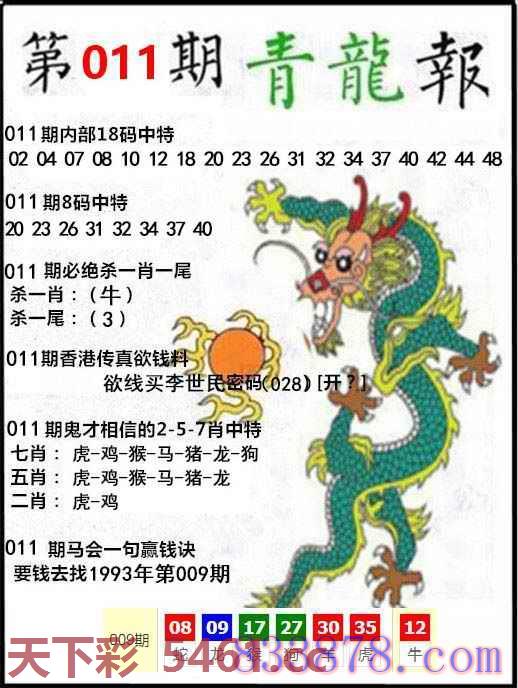 第011期青龍報
011期内部18码中特
02 04 07 08 10 12 18 20 23 26 31 32 34 37 40 42 44 48
011期8码中特
20 23 26 31 32 34 37 40
011期必绝杀一肖一尾
杀一肖:(牛)
杀一尾:(3)
011期香港传真欲钱料
欲线买李世民密码(028)[开?]
011期鬼才相信的2-5-7肖中特
七肖: 虎-鸡-猴-马-猪-龙-狗
五肖: 虎-鸡-猴-马-猪-龙
二肖: 虎-鸡
011期马会一句赢钱诀
要钱去找1993年第009期
009期 08 09 17 27 30 35 12
蛇 龙 猴 狗 羊 虎 牛
天下彩 5461.cc
838878.com